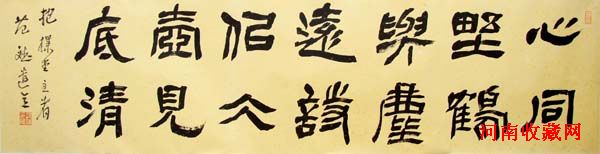 心同
野鶴
與塵
遠詩
佀仌
壺見
底清
抱樸堂主者
范
河南收藏网